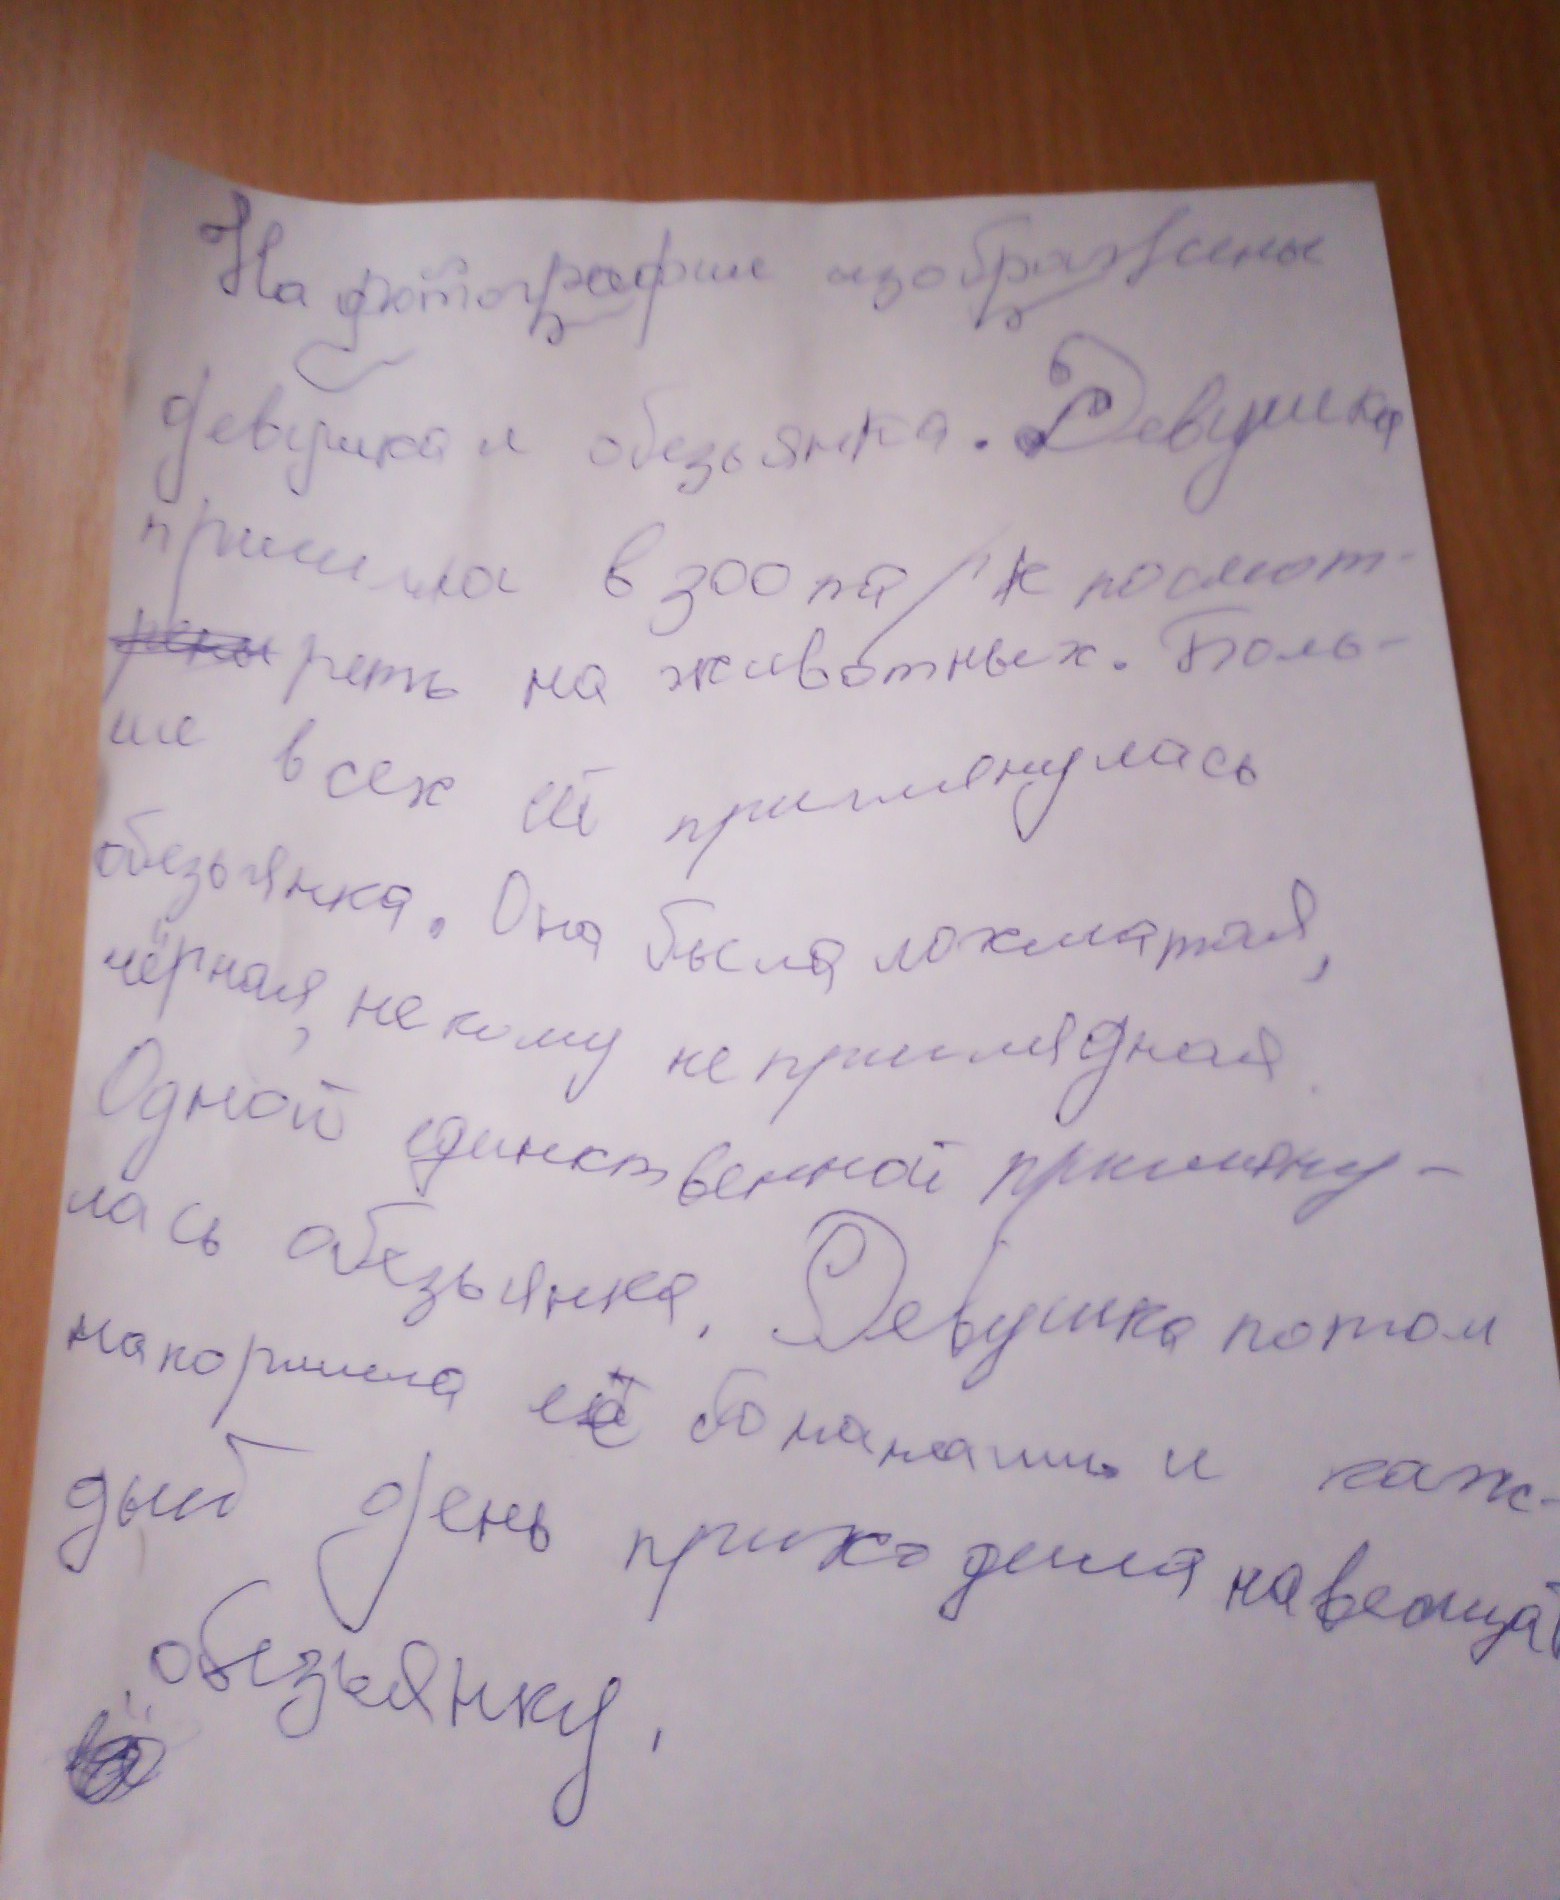 На фотографии изображены
девушка и обезьянка. Девушка
пришла в зоопарк посмот-
реть на животных. Боль-
ше всех ей приглянулась
обезьянка. Она была лохматая,
чёрная, не кому не приглядная.
Одной единственной пригляну-
лась обезьянка. Девушка потом
накормила её бонанами и каж-
дый день приходила навеща
обезьянку.